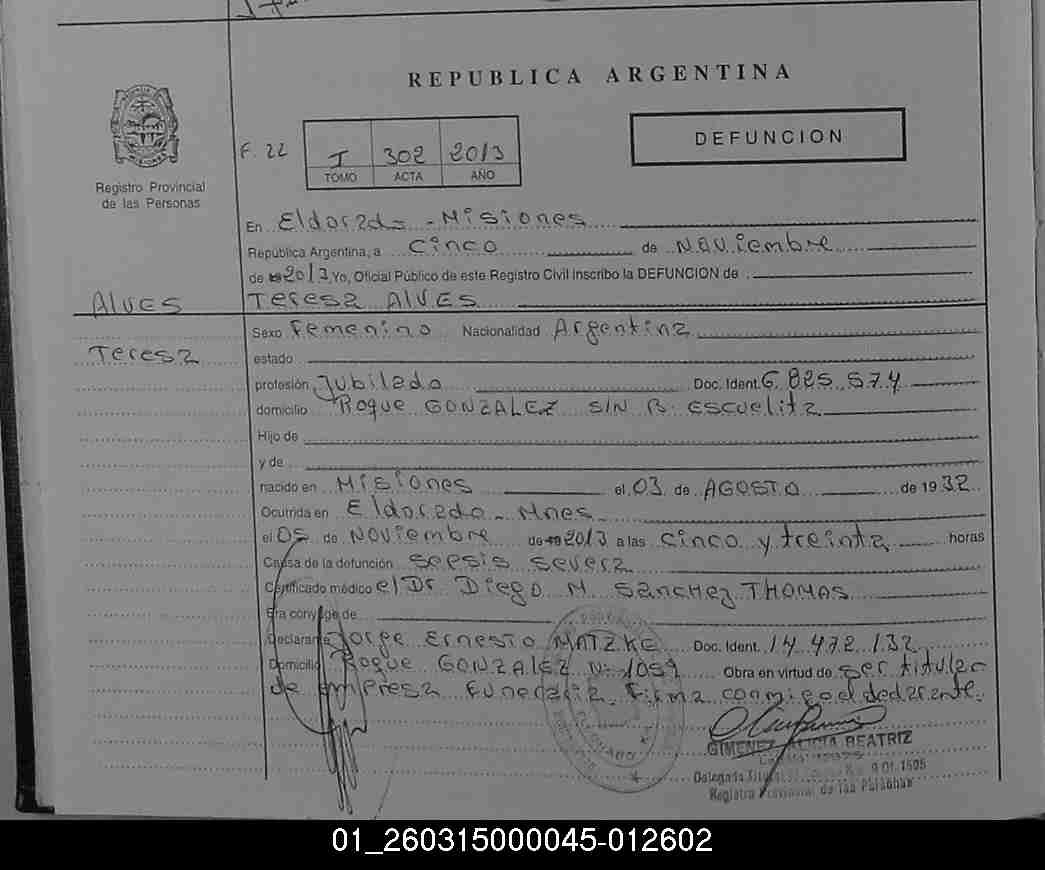 REPUBLICA ARGENTINA
DEFUNCION
F. 22
I 302 2013
TOMO ACTA AÑO
Registro Provincial
de las Personas
En Eldorado - Misiones
República Argentina, a cinco de Noviembre
de 2013 Yo, Oficial Público de este Registro Civil inscribo la DEFUNCION de
ALVES Teresa ALVES
Sexo Femenino Nacionalidad Argentina
Teresa estado
profesión Jubilada Doc. Ident. 6 825 574
domicilio Roque GONZALEZ S/N B. Escuelita
Hijo de
y de
nacido en Misiones el 03 de AGOSTO de 1932
Ocurrida en Eldorado - Mnes
el 05 de Noviembre de 2013 a las cinco y treinta horas
Causa de la defunción sepsis severa
Certificado médico el Dr Diego M. Sanchez THOMAS
Era conyuge de
Declarante Jorge Ernesto MATZKE Doc. Ident. 14 472 132
Domicilio Roque GONZALEZ Nº 1059 Obra en virtud de ser titular
de Empresa Funeraria. Firma conmigo el declarante.
GIMENEZ ALICIA BEATRIZ
Registro Provincial de las Personas
01_260315000045-012602